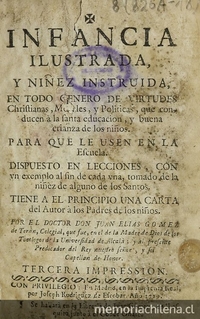 INFANCIA
ILUSTRADA,
Y NIÑEZ INSTRUIDA,
EN TODO GENERO DE VIRTUDES
Christianas, y Politicas, que con-
ducen à la santa educacion, y buena
crianza de los niños.
PARA QUE LE USEN EN LA
Escuela.
DISPUESTO EN LECCIONES, CON
un exemplo al fin de cada una, tomado de la
niñez de alguno de los Santos.
TIENE A EL PRINCIPIO UNA CARTA
del Autor à los Padres de los niños.
POR EL DOCTOR DON JUAN ELIAS GOMEZ
de Teràn, Colegial, que fue, en el de la Madre de Dios de los
Teologos de la Universidad de Alcalà, y
Predicador del Rey nuestro señor, y su
Capellan de Honor.
TERCERA IMPRESSION.
CON PRIVILEGIO: En Madrid, en la
por Joseph Rodriguez de Escobar. Año
memoriachilena.cl